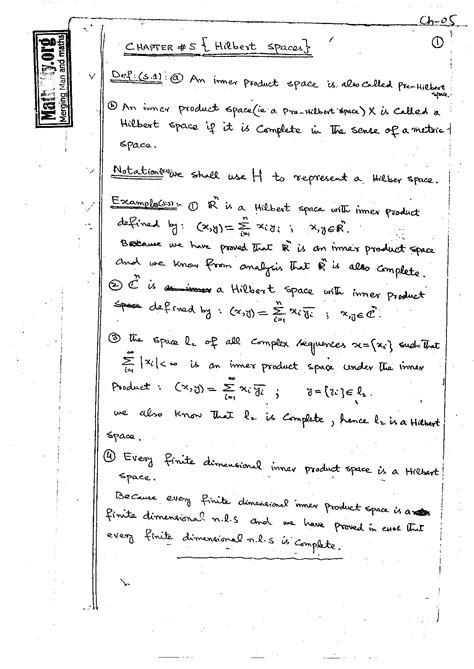 Ch-05
①
MathCity.org
Merging Man and maths
CHAPTER # 5 { Hilbert spaces}
Def:(5.1): ⓐ An inner product space is also called Pre-Hilbert
space.
ⓑ An inner product space (ie a Pre-Hilbert space) X is called a
Hilbert space if it is complete in the sense of a metric
space.
Notation: we shall use H to represent a Hilber space.
Examples: ① ℝⁿ is a Hilbert space with inner product
defined by: (x,y) = Σ_{i=1}^{n} xᵢyᵢ ; x,y∈ℝⁿ.
Because we have proved that ℝⁿ is an inner product space
and we know from analysis that ℝⁿ is also complete.
② ℂⁿ is a Hilbert space with inner product
defined by: (x,y) = Σ_{i=1}^{n} xᵢȳᵢ ; x,y∈ℂⁿ.
③ The space l₂ of all complex sequences x={xᵢ} such that
Σ_{i=1}^{∞} |xᵢ| < ∞ is an inner product space under the inner
Product : (x,y) = Σ_{i=1}^{∞} xᵢȳᵢ ; y={yᵢ}∈ l₂.
we also know that l₂ is complete, hence l₂ is a Hilbert
space.
④ Every finite dimensional inner product space is a Hilbert
space.
Because every finite dimensional inner product space is a
finite dimensional n.l.s and we have proved in ch02 that
every finite dimensional n.l.s is complete.